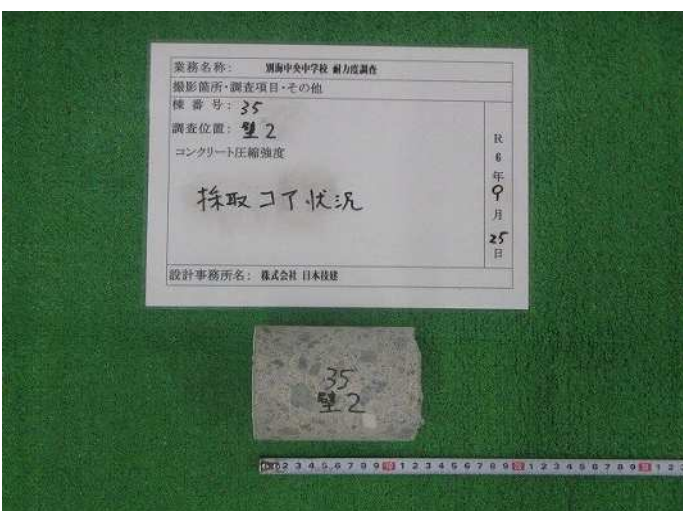 業務名称： 別海中央中学校 耐力度調査
撮影箇所・調査項目・その他
棟番号：35
調査位置：壁2
コンクリート圧縮強度
採取コア状況
R6年9月25日
設計事務所名： 株式会社 日本技建
35
壁2
1 2 3 4 5 6 7 8 9 10 1 2 3 4 5 6 7 8 9 20 1 2 3 4 5 6 7 8 9 30 1 2